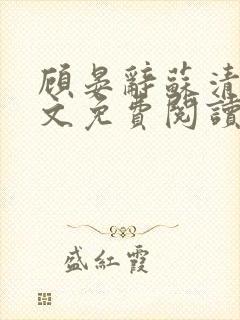 顧晏辭蘇清
文免費閱讀
盛紅霞